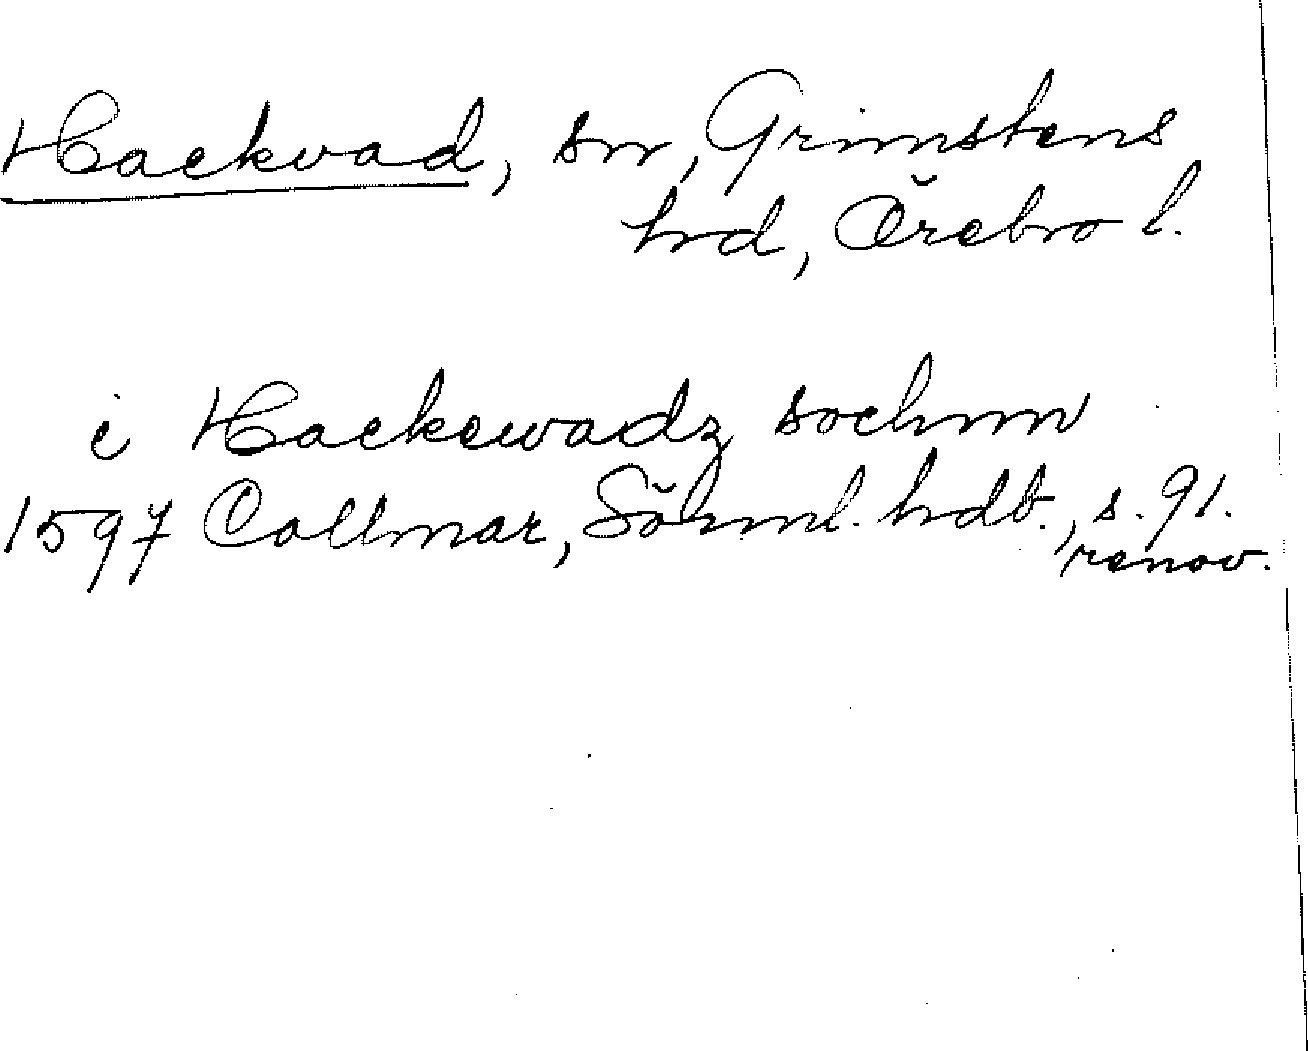 Hackvad, sn, Grimstens
hrd, Örebro l.
i Hackewadz sochnn
1597 Collmar, Sörml. hdb., s. 91.
renov.